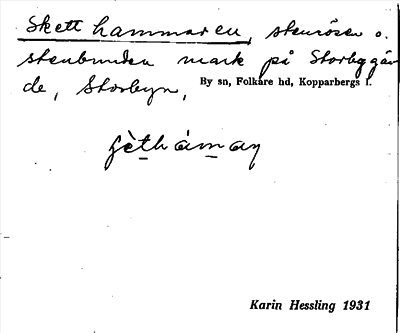 Sketthammaren, stenrösen o.
stenbunden mark på Storbygär
de, Storbyn,
By sn, Folkare hd, Kopparbergs l.
Karin Hessling 1931